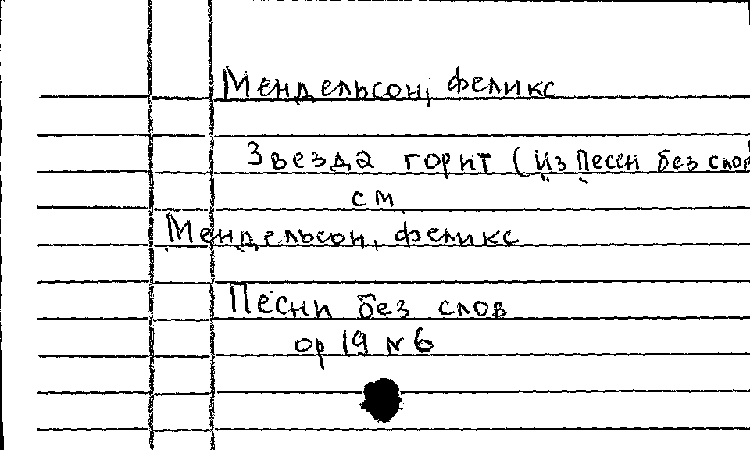 Мендельсон, Феликс
Звезда горит (из Песен без слов
см
Мендельсон, Феликс
Песни без слов
op 19 № 6